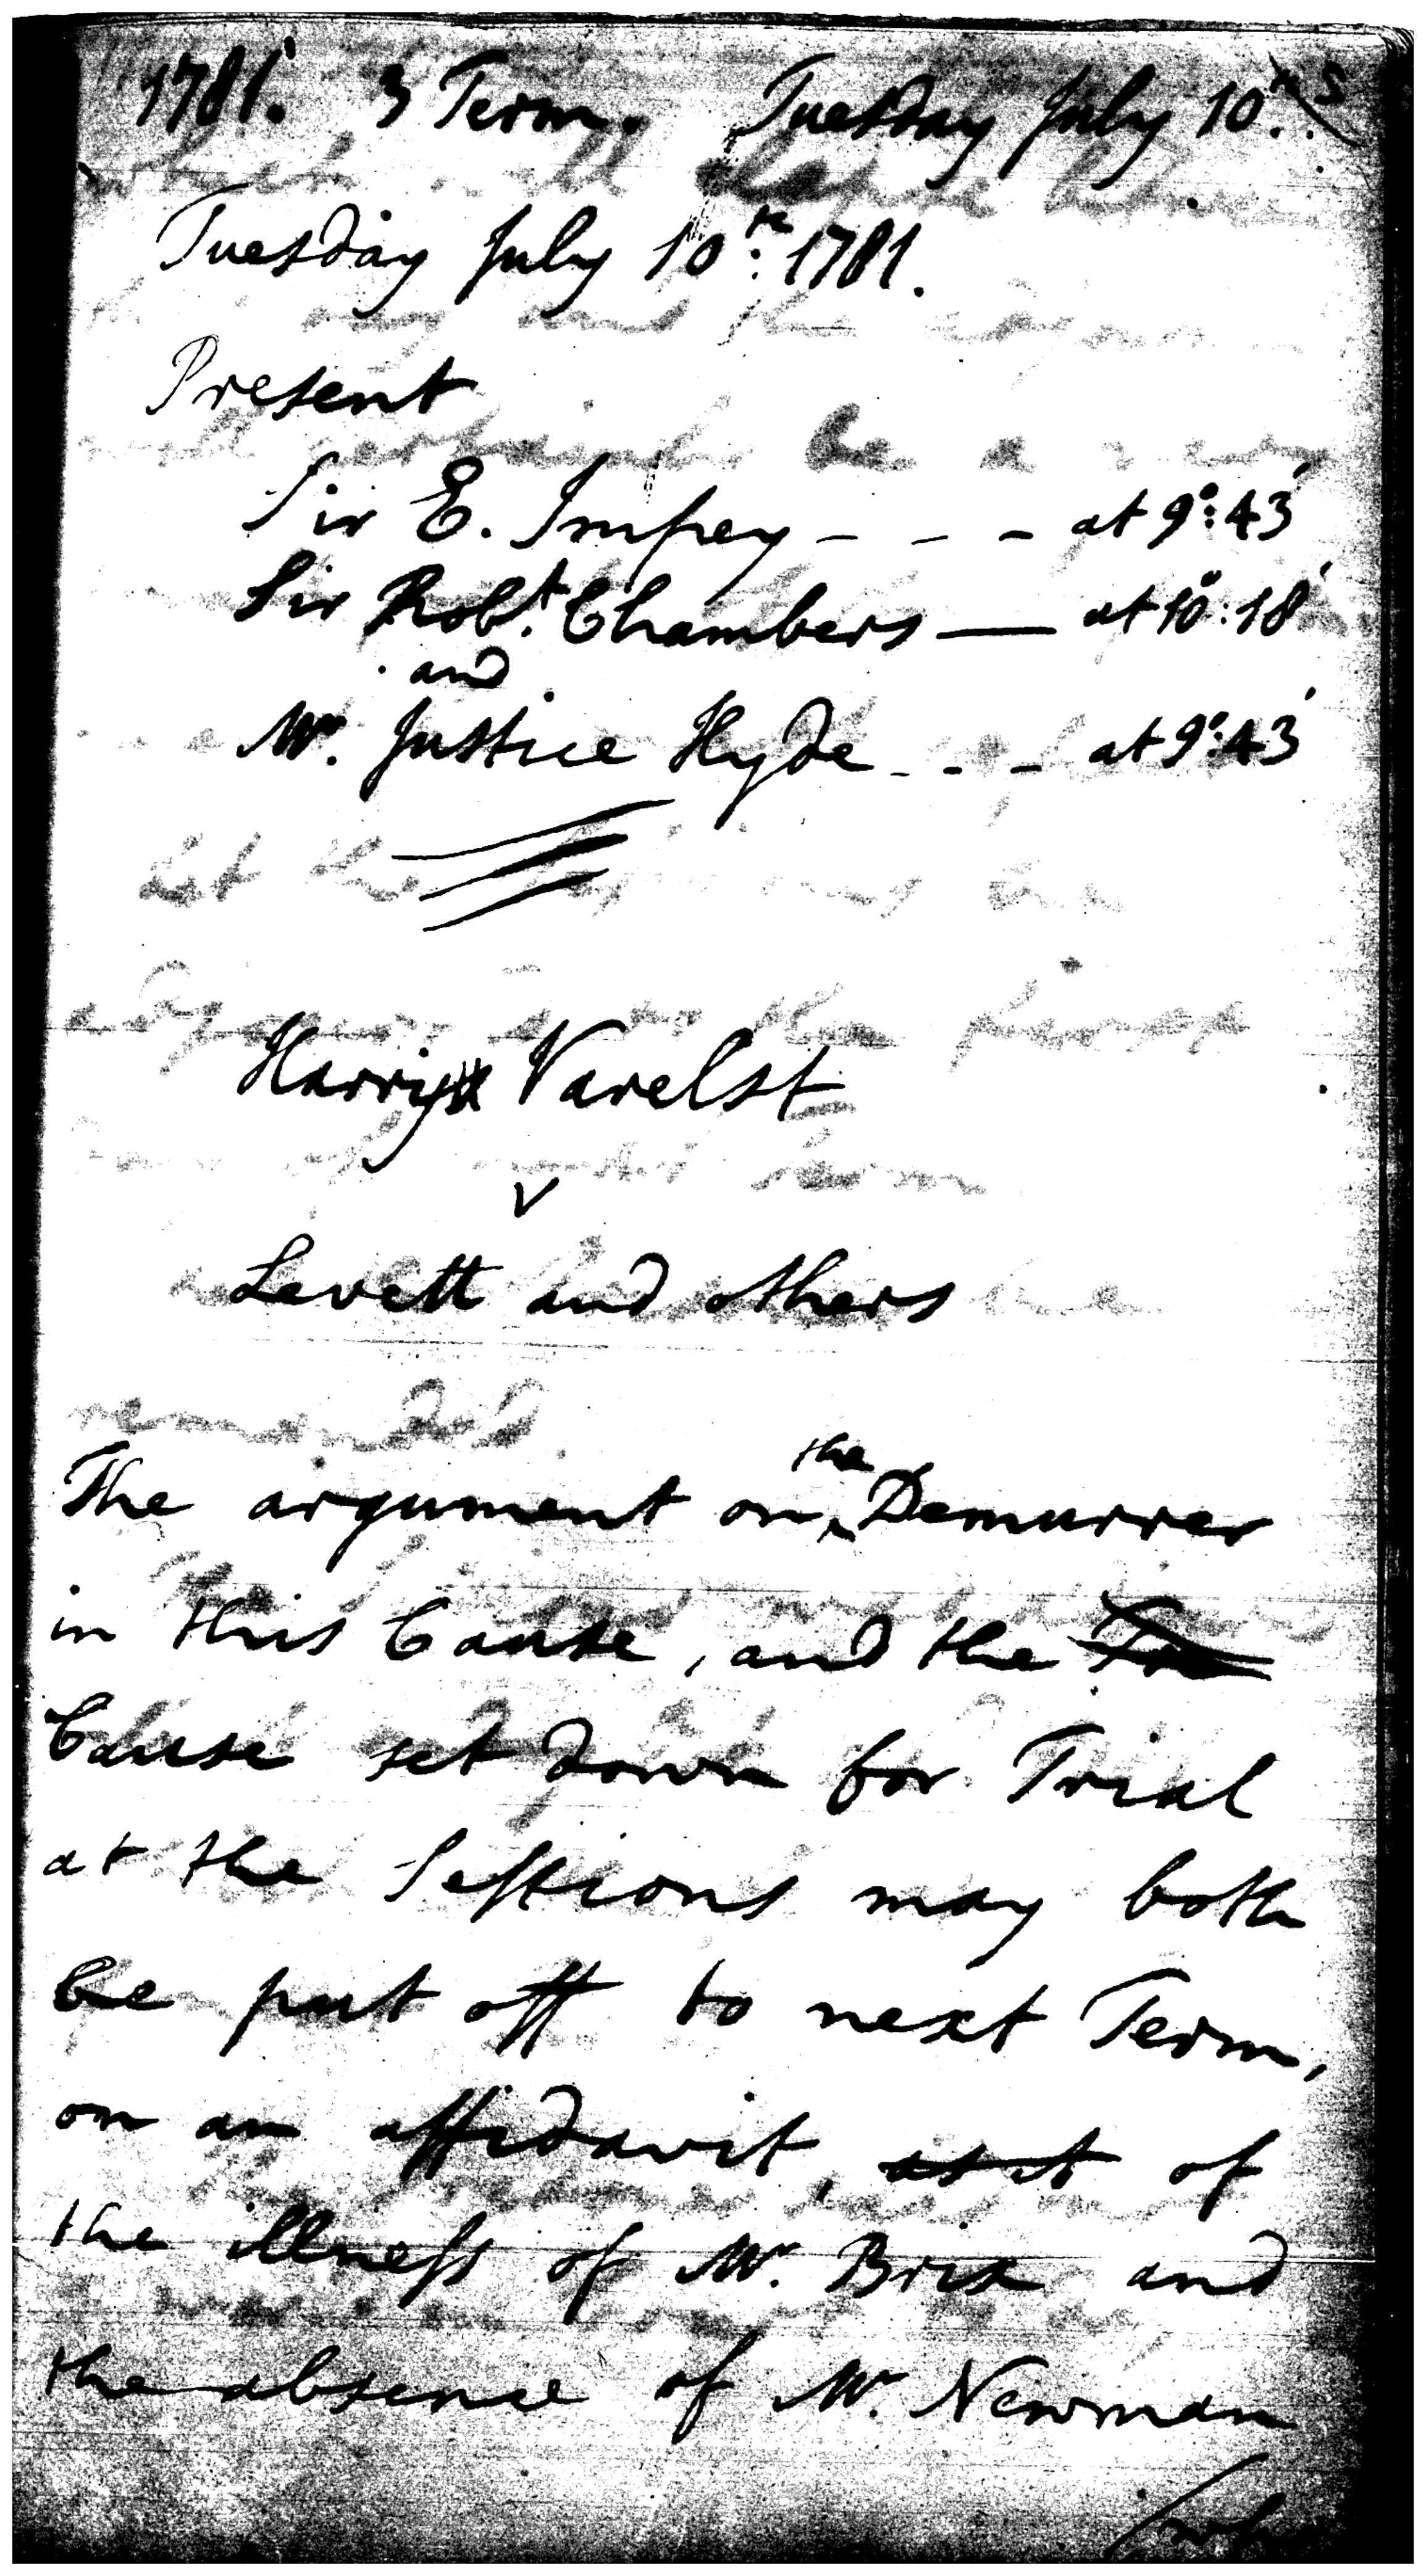 1781. 3 Term. Tuesday July 10.th
Tuesday July 10.th 1781.
Present
Sir E. Impey - - - at 9°:43'
Sir Robt. Chambers — at 10°:18'
and
Mr. Justice Hyde - - - at 9°:43'
Harry Varelst
v
Levett and others
The argument on the Demurrer
in this Cause, and the
Cause set down for Trial
at the Sessions may both
be put off to next Term,
on an affidavit, as it of
the illness of Mr. Brix and
the absence of Mr. Newman